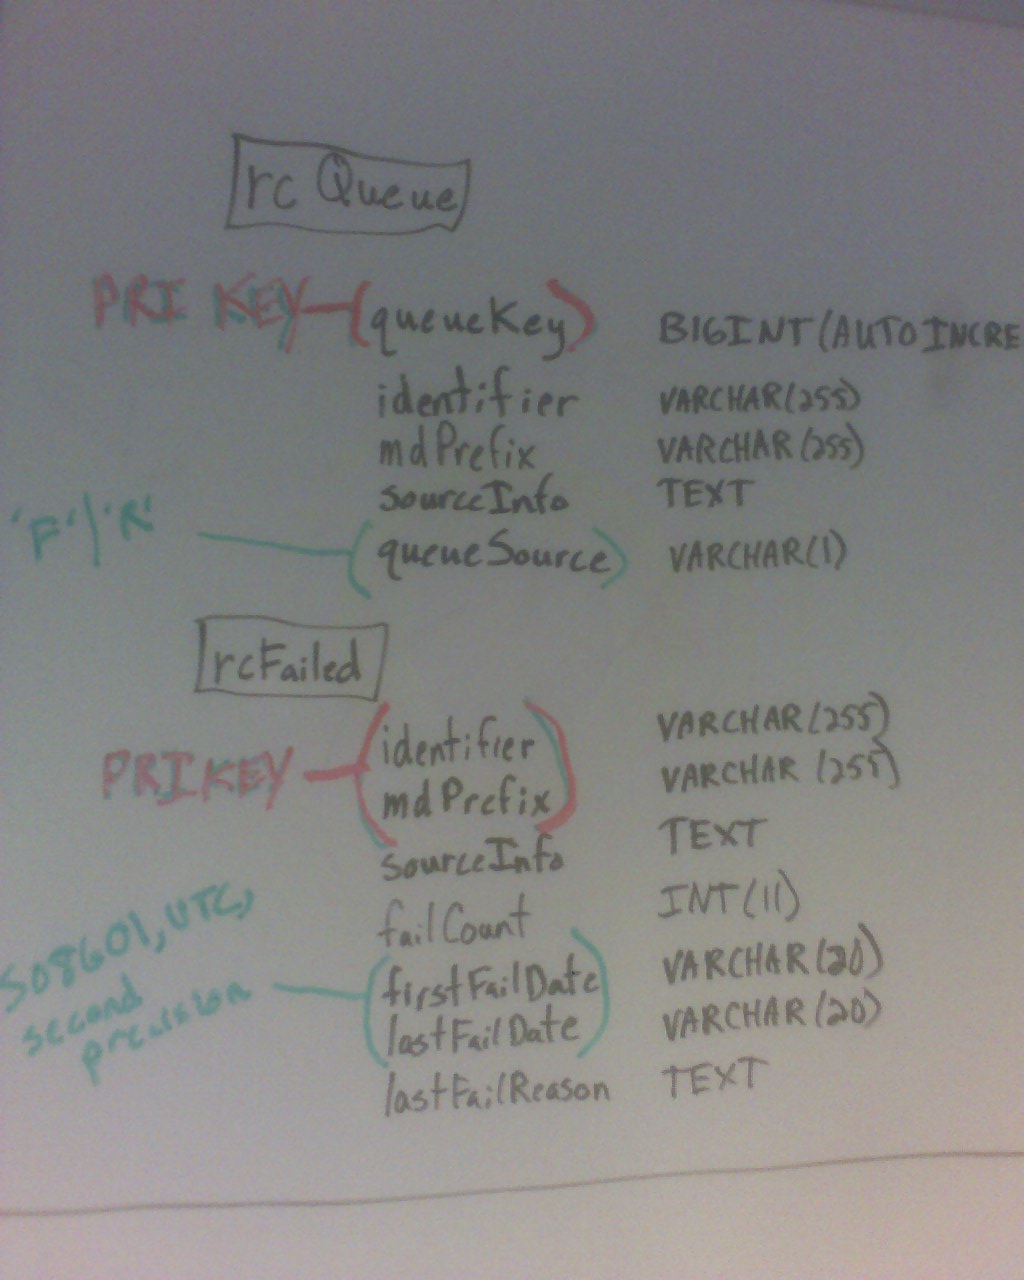 rcQueue
PRI KEY (queueKey) BIGINT (AUTOINCRE
identifier VARCHAR(255)
mdPrefix VARCHAR(255)
sourceInfo TEXT
'F'|'R' (queueSource) VARCHAR(1)
rcFailed
PRIKEY (identifier VARCHAR(255)
mdPrefix) VARCHAR(255)
sourceInfo TEXT
failCount INT(11)
SO8601, UTC,
second
precision
(firstFailDate VARCHAR(20)
lastFailDate) VARCHAR(20)
lastFailReason TEXT